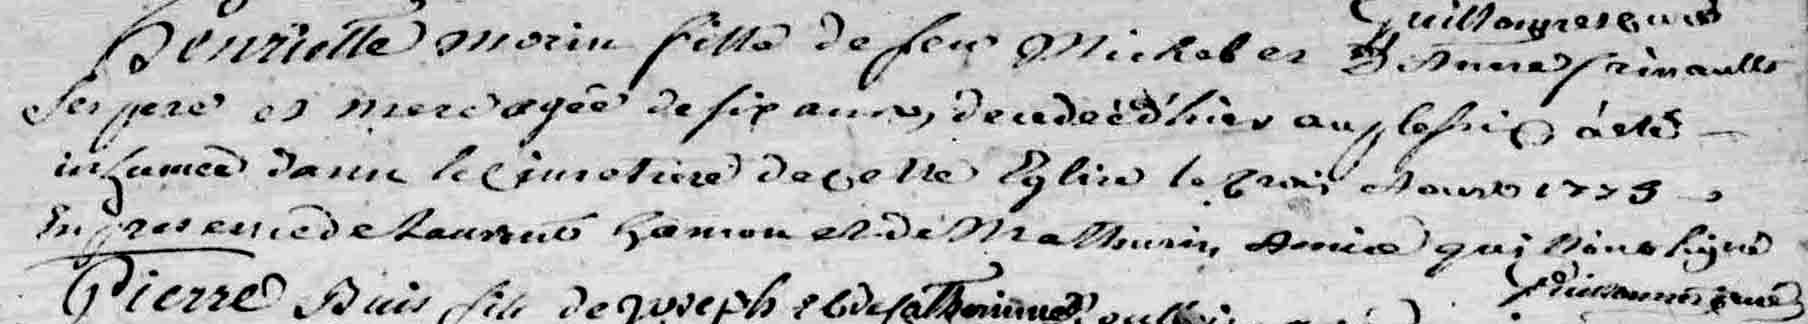 Henriette morin fille de feu Michel et d'Anne
ses pere et mere agée de six ans, decedée d'hier au plessix à été
inhumée dans le cimetiere de cette Eglise le trois 1775
En presence de Laurent hamon et de Mathurin amice qui n'ont signé
Pierre Buis fils de joseph et de